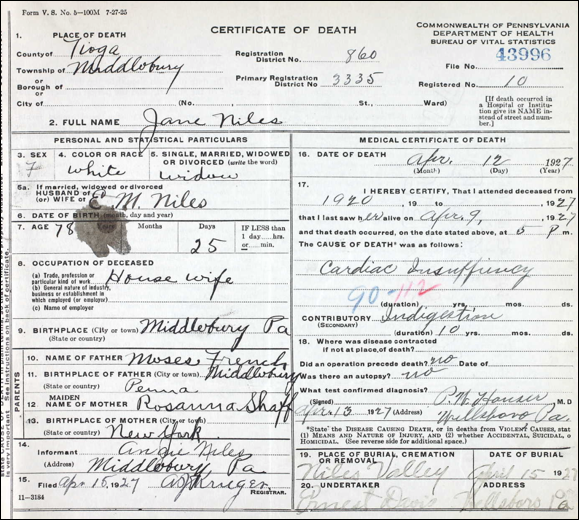 Form V. S. No. 5-100M 7-27-25
CERTIFICATE OF DEATH
COMMONWEALTH OF PENNSYLVANIA
DEPARTMENT OF HEALTH
BUREAU OF VITAL STATISTICS
1. PLACE OF DEATH
County of Tioga
Registration District No. 860
File No. 43996
Township of Middlebury
or
Borough of
Primary Registration District No 3335
Registered No. 10
or
City of (No. St., Ward)
[If death occurred in a Hospital or Institution give its NAME instead of street and number.]
2. FULL NAME Jane Niles
PERSONAL AND STATISTICAL PARTICULARS
3. SEX F
4. COLOR OR RACE white
5. SINGLE, MARRIED, WIDOWED OR DIVORCED (write the word) widow
5a. If married, widowed or divorced
HUSBAND of
(or) WIFE of M. Niles
6. DATE OF BIRTH (month, day and year)
7. AGE 78 Months Days 25 IF LESS than 1 day hrs. or min.
8. OCCUPATION OF DECEASED
(a) Trade, profession or particular kind of work House wife
(b) General nature of industry, business or establishment in which employed (or employer)
(c) Name of employer
9. BIRTHPLACE (City or town) Middlebury Pa
(State or country)
PARENTS
10. NAME OF FATHER Moses French
11. BIRTHPLACE OF FATHER (City or town) Middlebury
(State or country) Penna
12. MAIDEN NAME OF MOTHER Rosanna Shaff
13. BIRTHPLACE OF MOTHER (City or town)
(State or country) New York
14. Informant Angie Niles
(Address) Middlebury Pa
15. Filed Apr 15, 1927 Krieger REGISTRAR.
11-3184
MEDICAL CERTIFICATE OF DEATH
16. DATE OF DEATH Apr. 12 1927
(Month) (Day) (Year)
17. I HEREBY CERTIFY, That I attended deceased from
1920, 19 to , 1927
that I last saw her alive on Apr 9, 1927
and that death occurred, on the date stated above, at 5 P m.
The CAUSE OF DEATH* was as follows:
Cardiac Insuffiency
90-112
(duration) yrs. mos. ds.
CONTRIBUTORY Indigestion
(SECONDARY) (duration) 10 yrs. mos. ds.
18. Where was disease contracted
if not at place of death?
Did an operation precede death? no Date of
Was there an autopsy? no
What test confirmed diagnosis?
(Signed) P.W. Hauser M. D
Apr 13 1927 (Address) Wellsboro Pa.
*State the DISEASE CAUSING DEATH, or in deaths from VIOLENT CAUSES, stat
(1) MEANS AND NATURE OF INJURY, and (2) whether ACCIDENTAL, SUICIDAL, o
HOMICIDAL. (See reverse side for additional space.)
19. PLACE OF BURIAL, CREMATION OR REMOVAL Niles Valley
DATE OF BURIAL April 15 192
20. UNDERTAKER Ernest Davis Wellsboro Pa